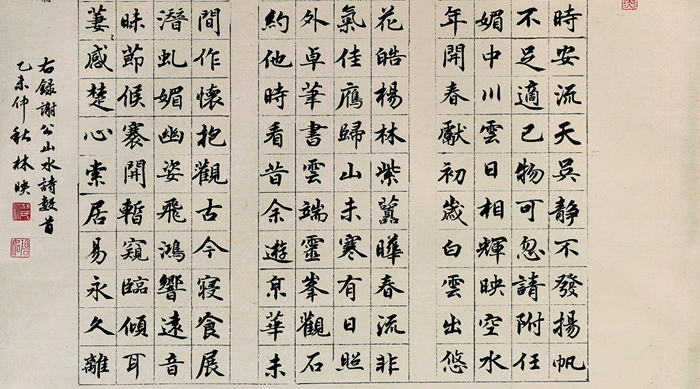 時安流天吳靜不發揚帆
不足適己物可忽請附任
媚中川雲日相輝映空水
年開春獻初歲白雲出悠
花皓楊林紫虈曄春流非
氣佳鴈歸山未寒有日照
外卓筆書雲端靈峯觀石
約他時看昔余遊京華未
間作懷抱觀古今寢食展
潛虬媚幽姿飛鴻響遠音
昧節候褰開暫窺臨傾耳
萋感楚心索居易永久離
右錄謝公山水詩數首
乙未仲秋林映